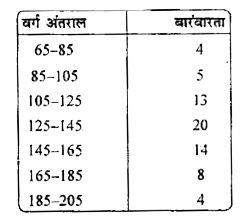 वर्ग अंतराल बारंबारता
65–85 4
85–105 5
105–125 13
125–145 20
145–165 14
165–185 8
185–205 4